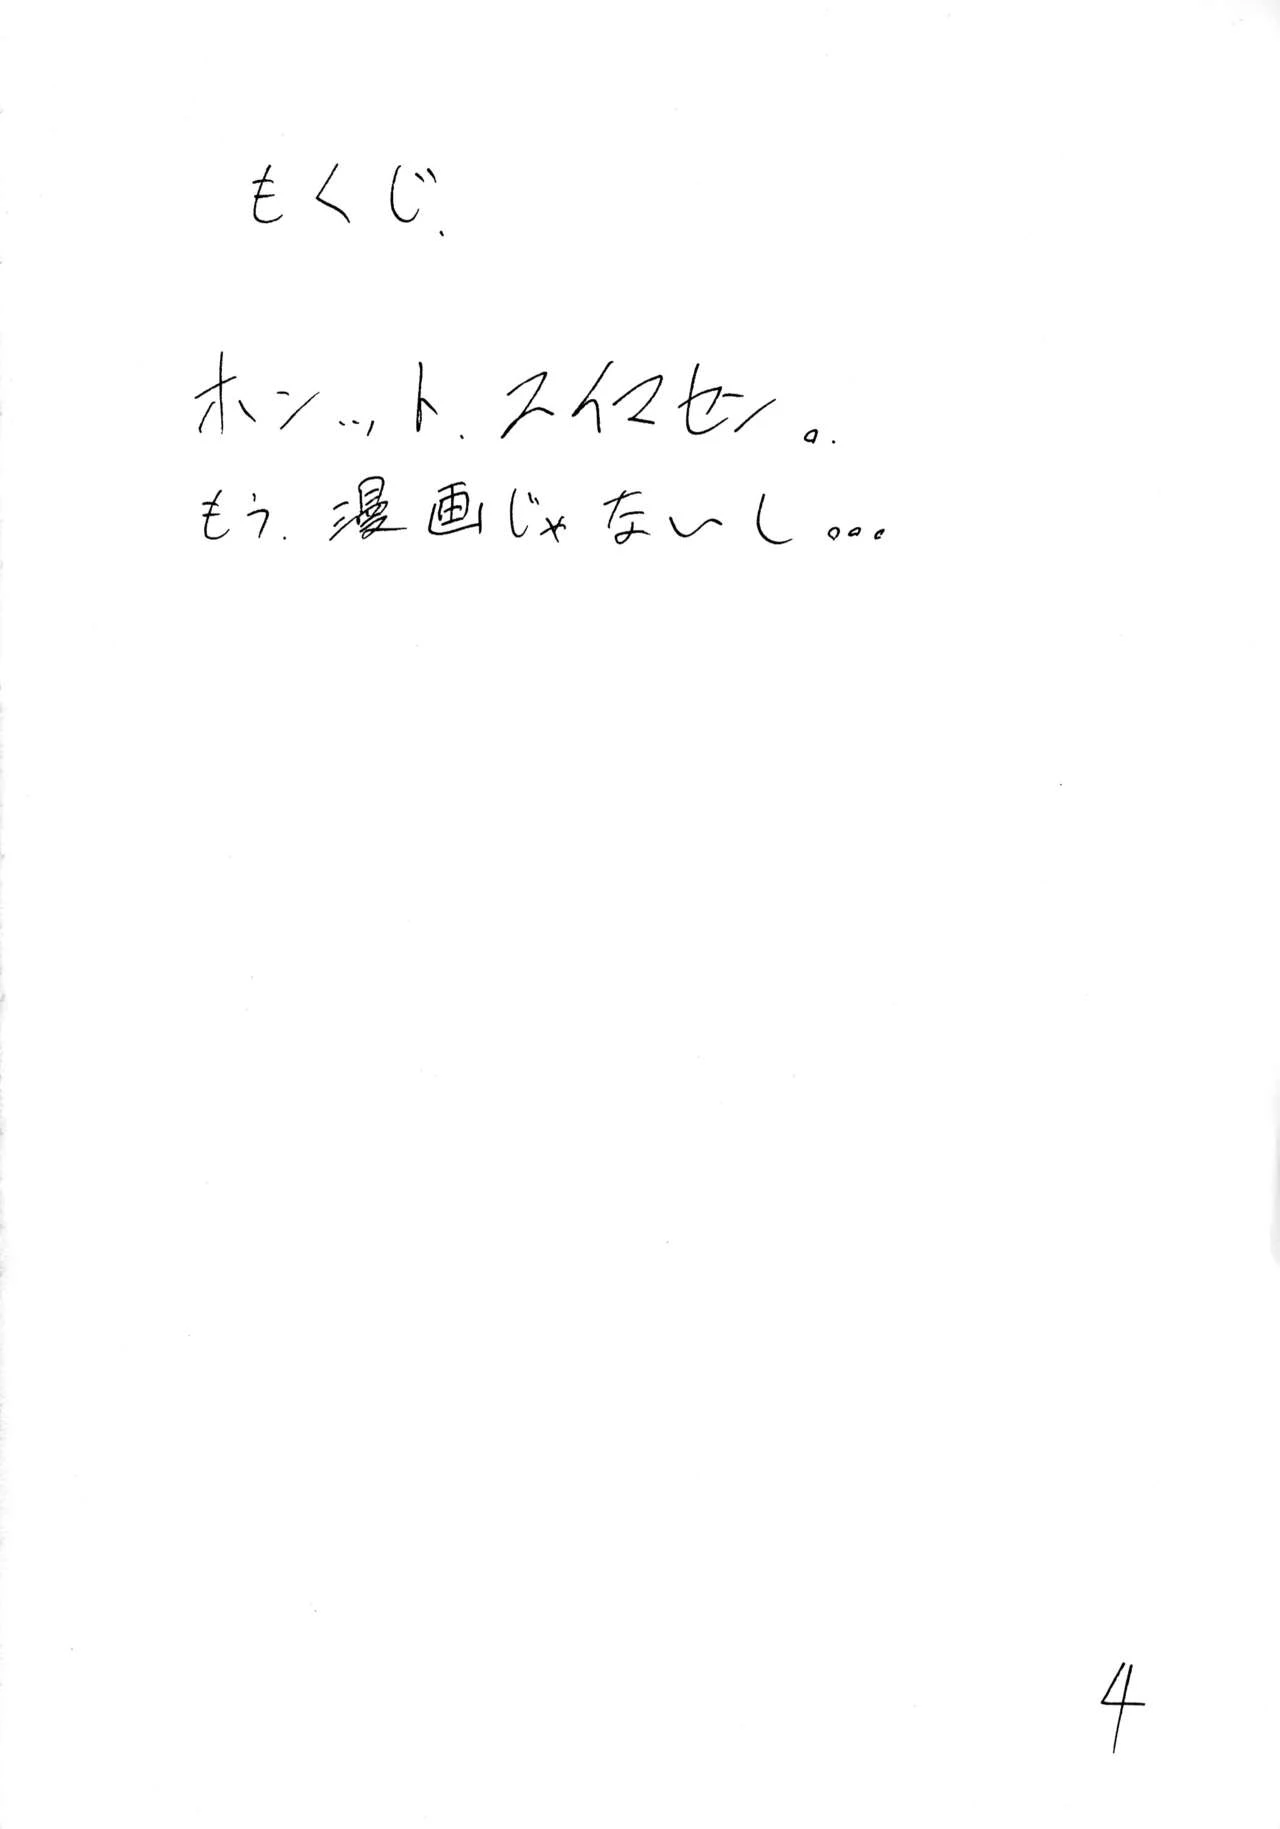 もくじ.
ホンット.スイマセン。.
もう.漫画じゃないし...
4